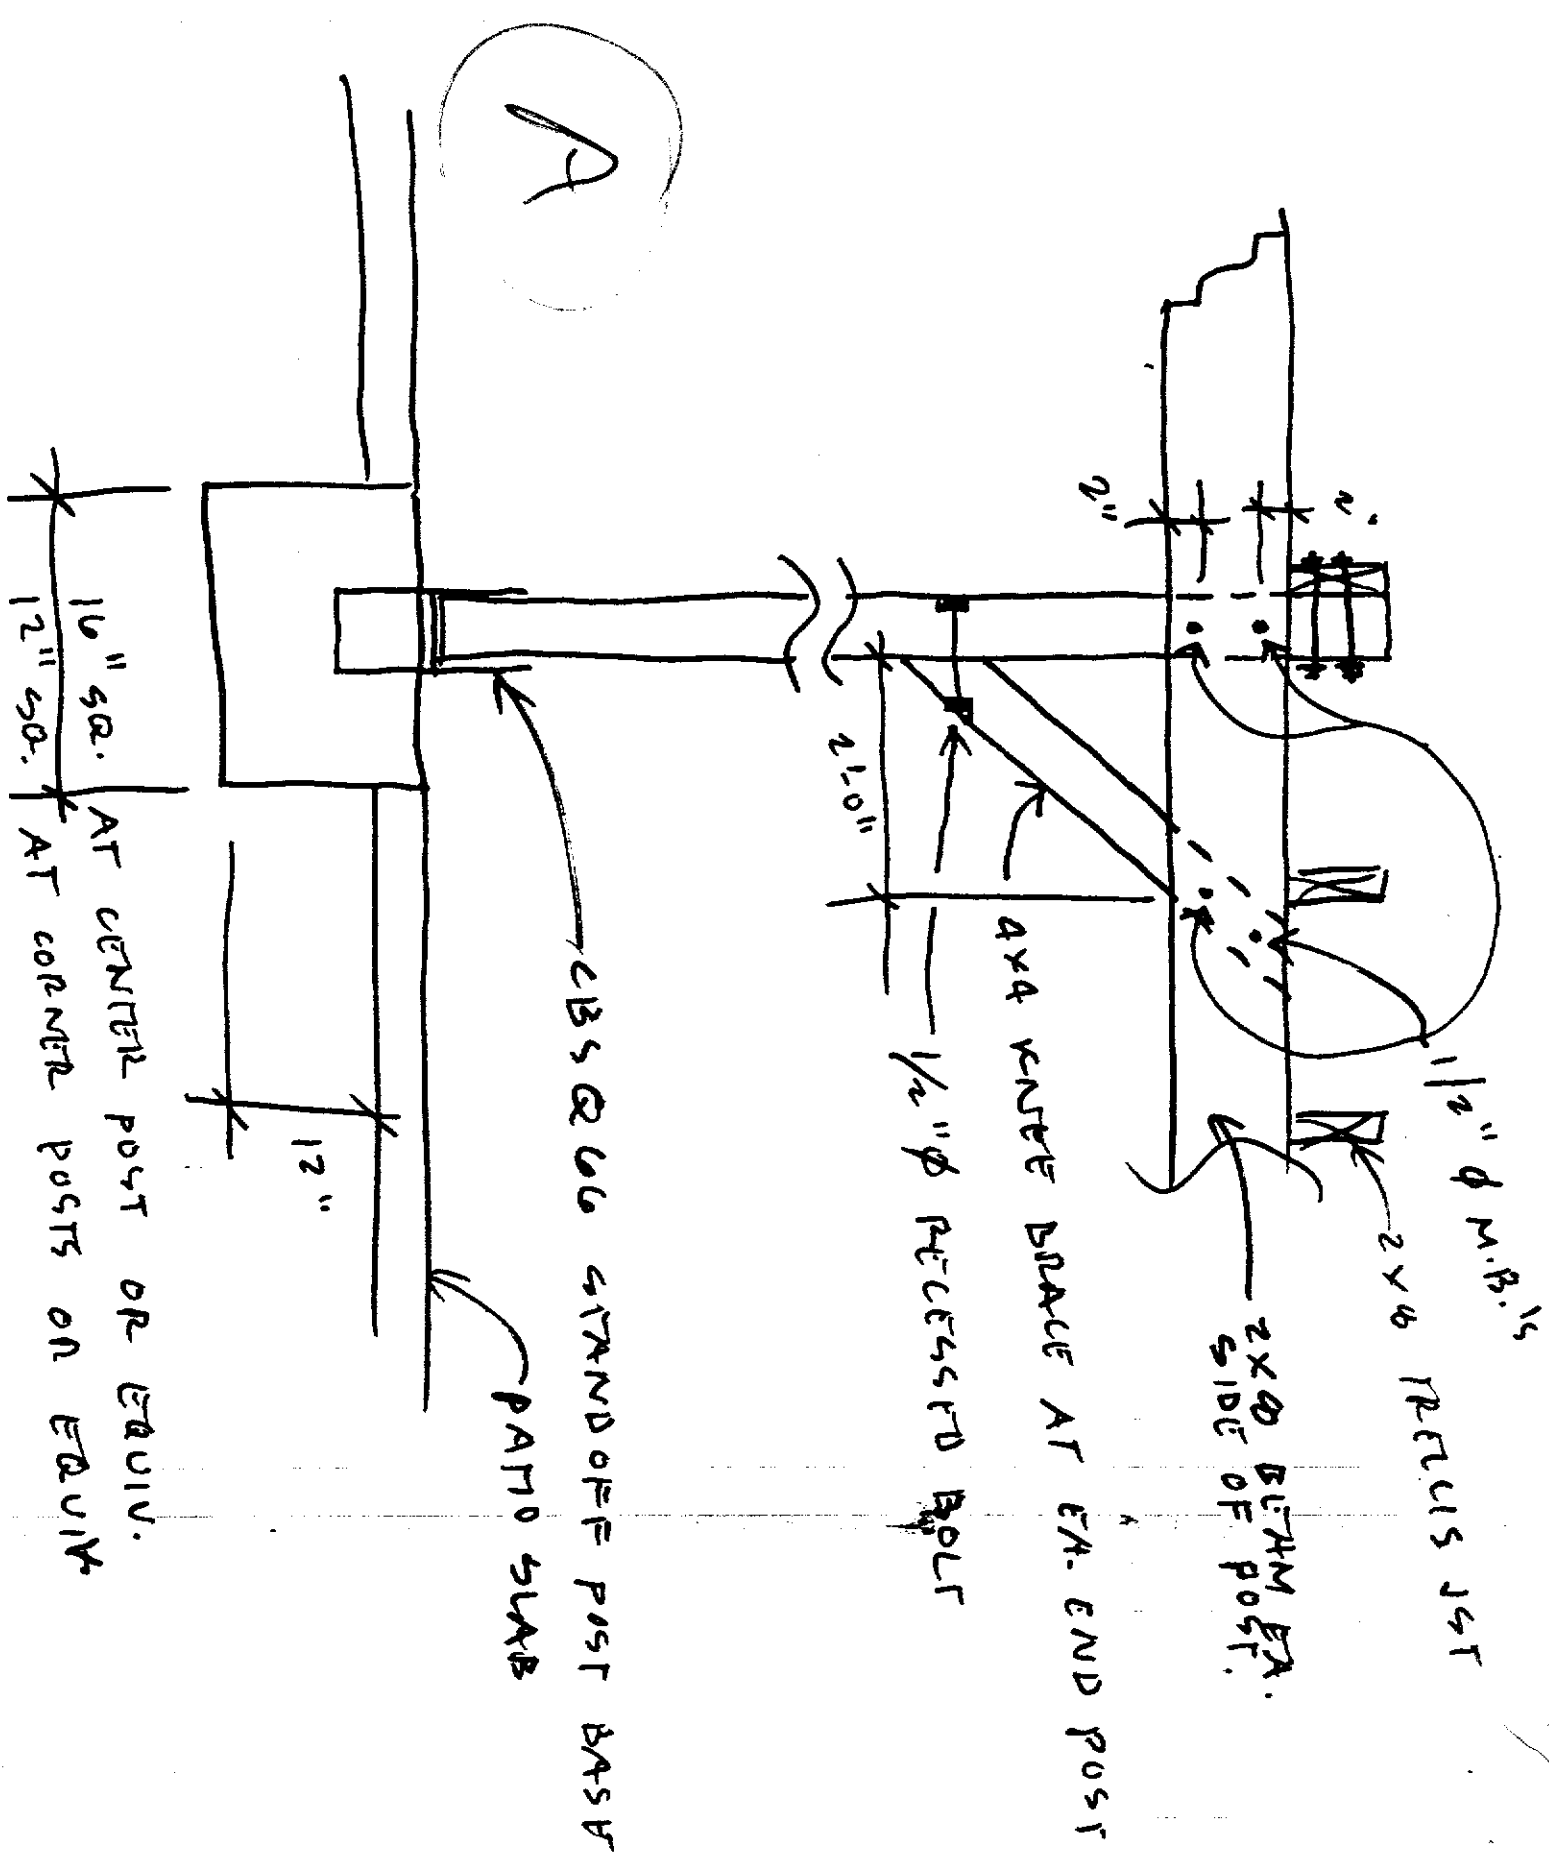 1/2" φ M.B.'s
2x6 TRELLIS JST
2"
2x8 BEAM EA.
SIDE OF POST.
2"
4x4 KNEE BRACE AT EA. END POST
1/2" φ RECESSED BOLT
2'-0"
A
CBSQ66 STANDOFF POST BASE
PATIO SLAB
12"
16" SQ. AT CENTER POST OR EQUIV.
12" SQ. AT CORNER POSTS OR EQUIV